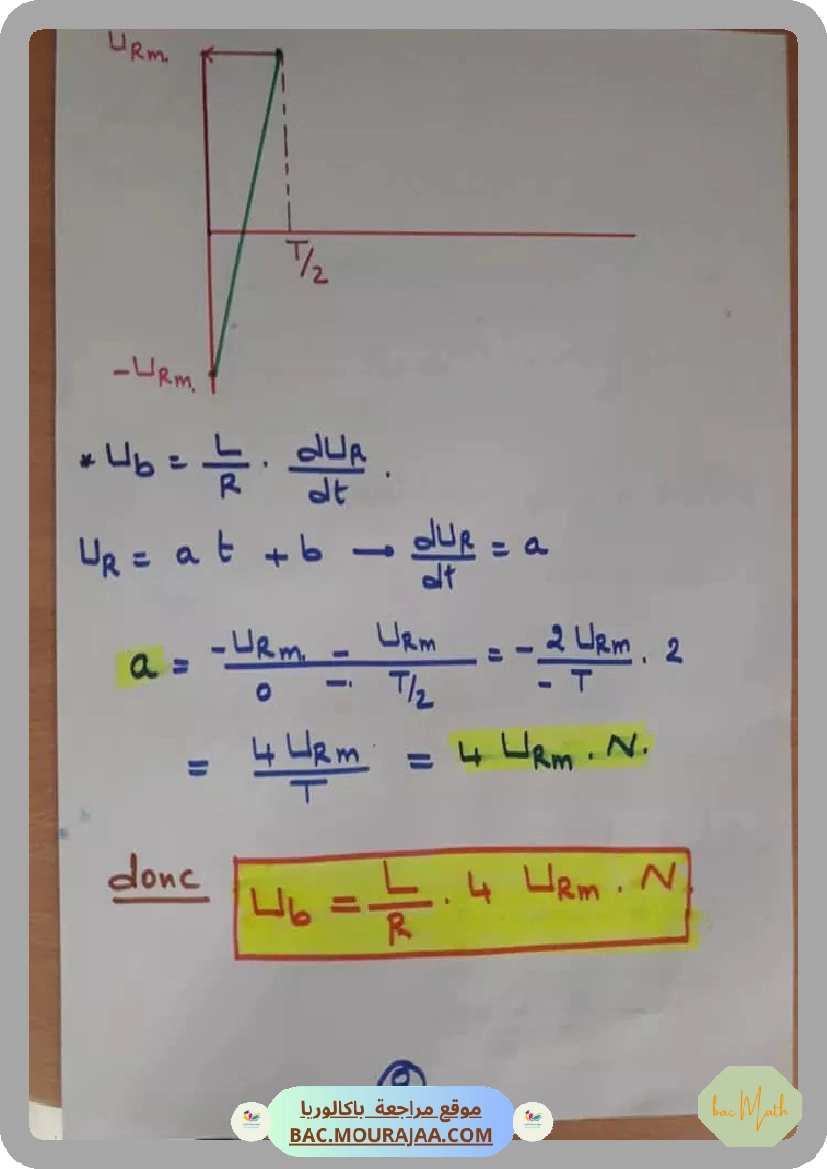 URm.
T/2
-URm.
* Ub = L/R . dUR/dt .
UR = a t + b → dUR/dt = a
a = (-URm. - URm)/(0 - T/2) = - 2 URm/- T . 2
= 4 URm/T = 4 URm . N.
donc Ub = L/R . 4 URm . N.
موقع مراجعة باكالوريا
BAC.MOURAJAA.COM
bac Math